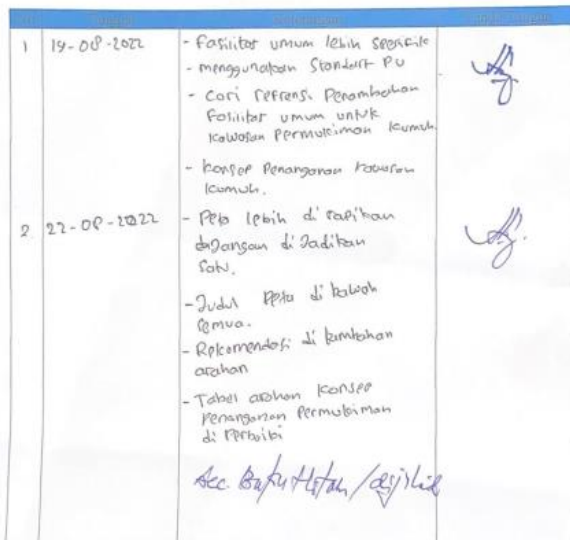 1 19-08-2022 - Fasilitas umum lebih spesifik
- menggunakan Standart PU
- Cari refrensi Penambahan
Fasilitas umum untuk
Kawasan Permukiman Kumuh.
- Konsep Penanganan Kawasan
Kumuh.
2 22-08-2022 - Peta lebih di rapikan
di Jadikan
Satu.
- Judul Peta di bawah
semua.
- Rekomendasi di tambahan
arahan
- Tabel arahan Konsep
Penanganan Permukiman
di Perbaiki
Acc